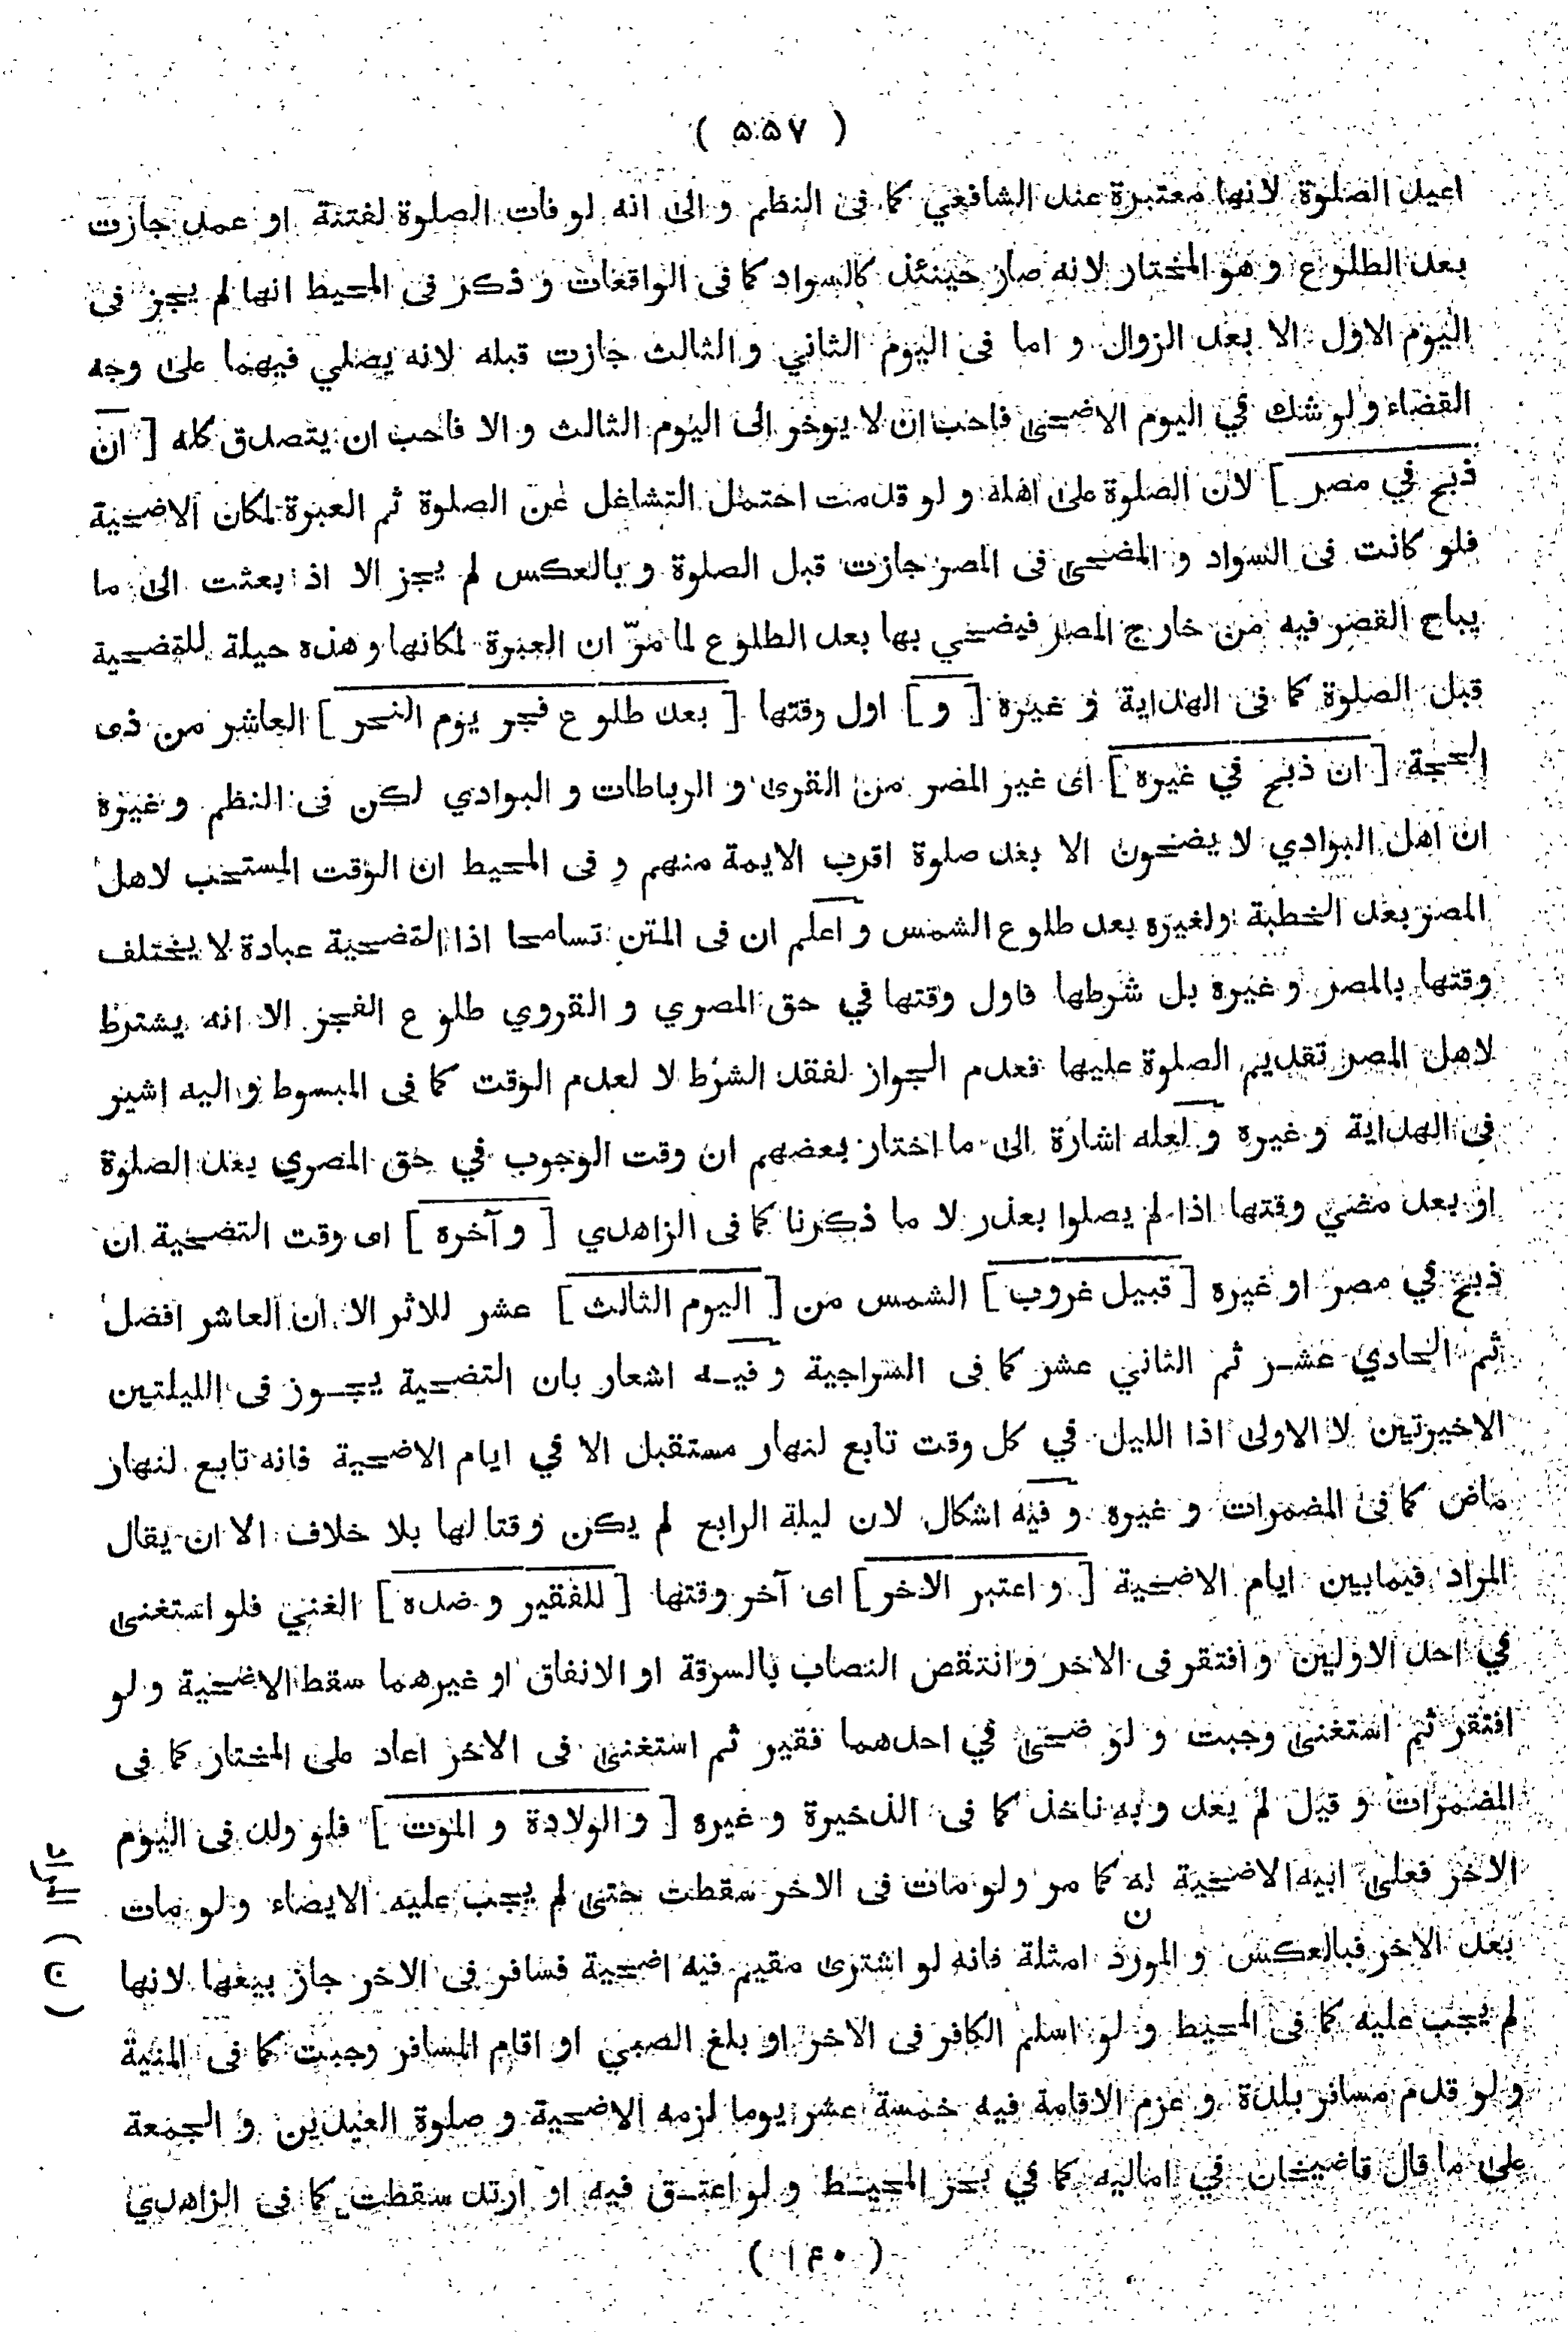 ( ۵۵۷ )
اعيد الصلوة لانها معتبرة عند الشافعي كما فى النظم و الى انه لو فات الصلوة لفتنة او عمد جازت
بعد الطلوع و هو المختار لانه صار حينئذ كالسواد كما فى الواقعات و ذكر فى المحيط انها لم يجز فى
اليوم الاول الا بعد الزوال و اما فى اليوم الثاني و الثالث جازت قبله لانه يصلي فيهما على وجه
القضاء و لو شك في اليوم الاضحى فاحب ان لا يوخر الى اليوم الثالث و الا فاحب ان يتصدق كله [ ان
ذبح في مصر ] لان الصلوة على اهله و لو قدمت احتمل التشاغل عن الصلوة ثم العبرة لمكان الاضحية
فلو كانت فى السواد و المضحى فى المصر جازت قبل الصلوة و بالعكس لم يجز الا اذ بعثت الى ما
يباح القصر فيه من خارج المصر فيضحي بها بعد الطلوع لما مرّ ان العبرة لمكانها و هذه حيلة للتضحية
قبل الصلوة كما فى الهداية و غيره [ و ] اول وقتها [ بعد طلوع فجر يوم النحر ] العاشر من ذى
الحجة [ ان ذبح في غيره ] اى غير المصر من القرى و الرباطات و البوادي لكن فى النظم و غيره
ان اهل البوادي لا يضحون الا بعد صلوة اقرب الايمة منهم و فى المحيط ان الوقت المستحب لاهل
المصر بعد الخطبة ولغيره بعد طلوع الشمس و اعلم ان فى المتن تسامحا اذا التضحية عبادة لا يختلف
وقتها بالمصر و غيره بل شرطها فاول وقتها في حق المصري و القروي طلوع الفجر الا انه يشترط
لاهل المصر تقديم الصلوة عليها فعدم الجواز لفقد الشرط لا لعدم الوقت كما فى المبسوط و اليه اشير
فى الهداية و غيره و لعله اشارة الى ما اختار بعضهم ان وقت الوجوب في حق المصري بعد الصلوة
او بعد مضي وقتها اذا لم يصلوا بعذر لا ما ذكرنا كما فى الزاهدي [ و آخره ] اى وقت التضحية ان
ذبح في مصر او غيره [ قبيل غروب ] الشمس من [ اليوم الثالث ] عشر للاثر الا ان العاشر افضل
ثم الحادي عشر ثم الثاني عشر كما فى السراجية و فيه اشعار بان التضحية يجوز فى الليلتين
الاخيرتين لا الاولى اذا الليل في كل وقت تابع لنهار مستقبل الا في ايام الاضحية فانه تابع لنهار
ماض كما فى المضمرات و غيره و فيه اشكال لان ليلة الرابع لم يكن وقتا لها بلا خلاف الا ان يقال
المراد فيمابين ايام الاضحية [ و اعتبر الاخر ] اى آخر وقتها [ للفقير و ضده ] الغني فلو استغنى
في احد الاولين و افتقر فى الاخر و انتقص النصاب بالسرقة او الانفاق او غيرهما سقط الاضحية و لو
افتقر ثم استغنى وجبت و لو ضحى في احدهما فقير ثم استغنى فى الاخر اعاد على المختار كما فى
المضمرات و قيل لم يعد و به ناخذ كما فى الذخيرة و غيره [ و الولادة و الموت ] فلو ولد فى اليوم
الاخر فعلى ابيه الاضحية له كما مر و لو مات فى الاخر سقطت حتى لم يجب عليه الايصاء و لو مات
بعد الاخر فبالعكس و المورد ن امثلة فانه لو اشترى مقيم فيه اضحية فسافر فى الاخر جاز بيعها لانها
لم يجب عليه كما فى المحيط و لو اسلم الكافر فى الاخر او بلغ الصبي او اقام المسافر وجبت كما فى المنية
و لو قدم مسافر بلدة و عزم الاقامة فيه خمسة عشر يوما لزمه الاضحية و صلوة العيدين و الجمعة
على ما قال قاضيخان في اماليه كما في بحر المحيط و لو اعتق فيه او ارتد سقطت كما فى الزاهدي
( ن ) المراد
( ۱۴۰ )